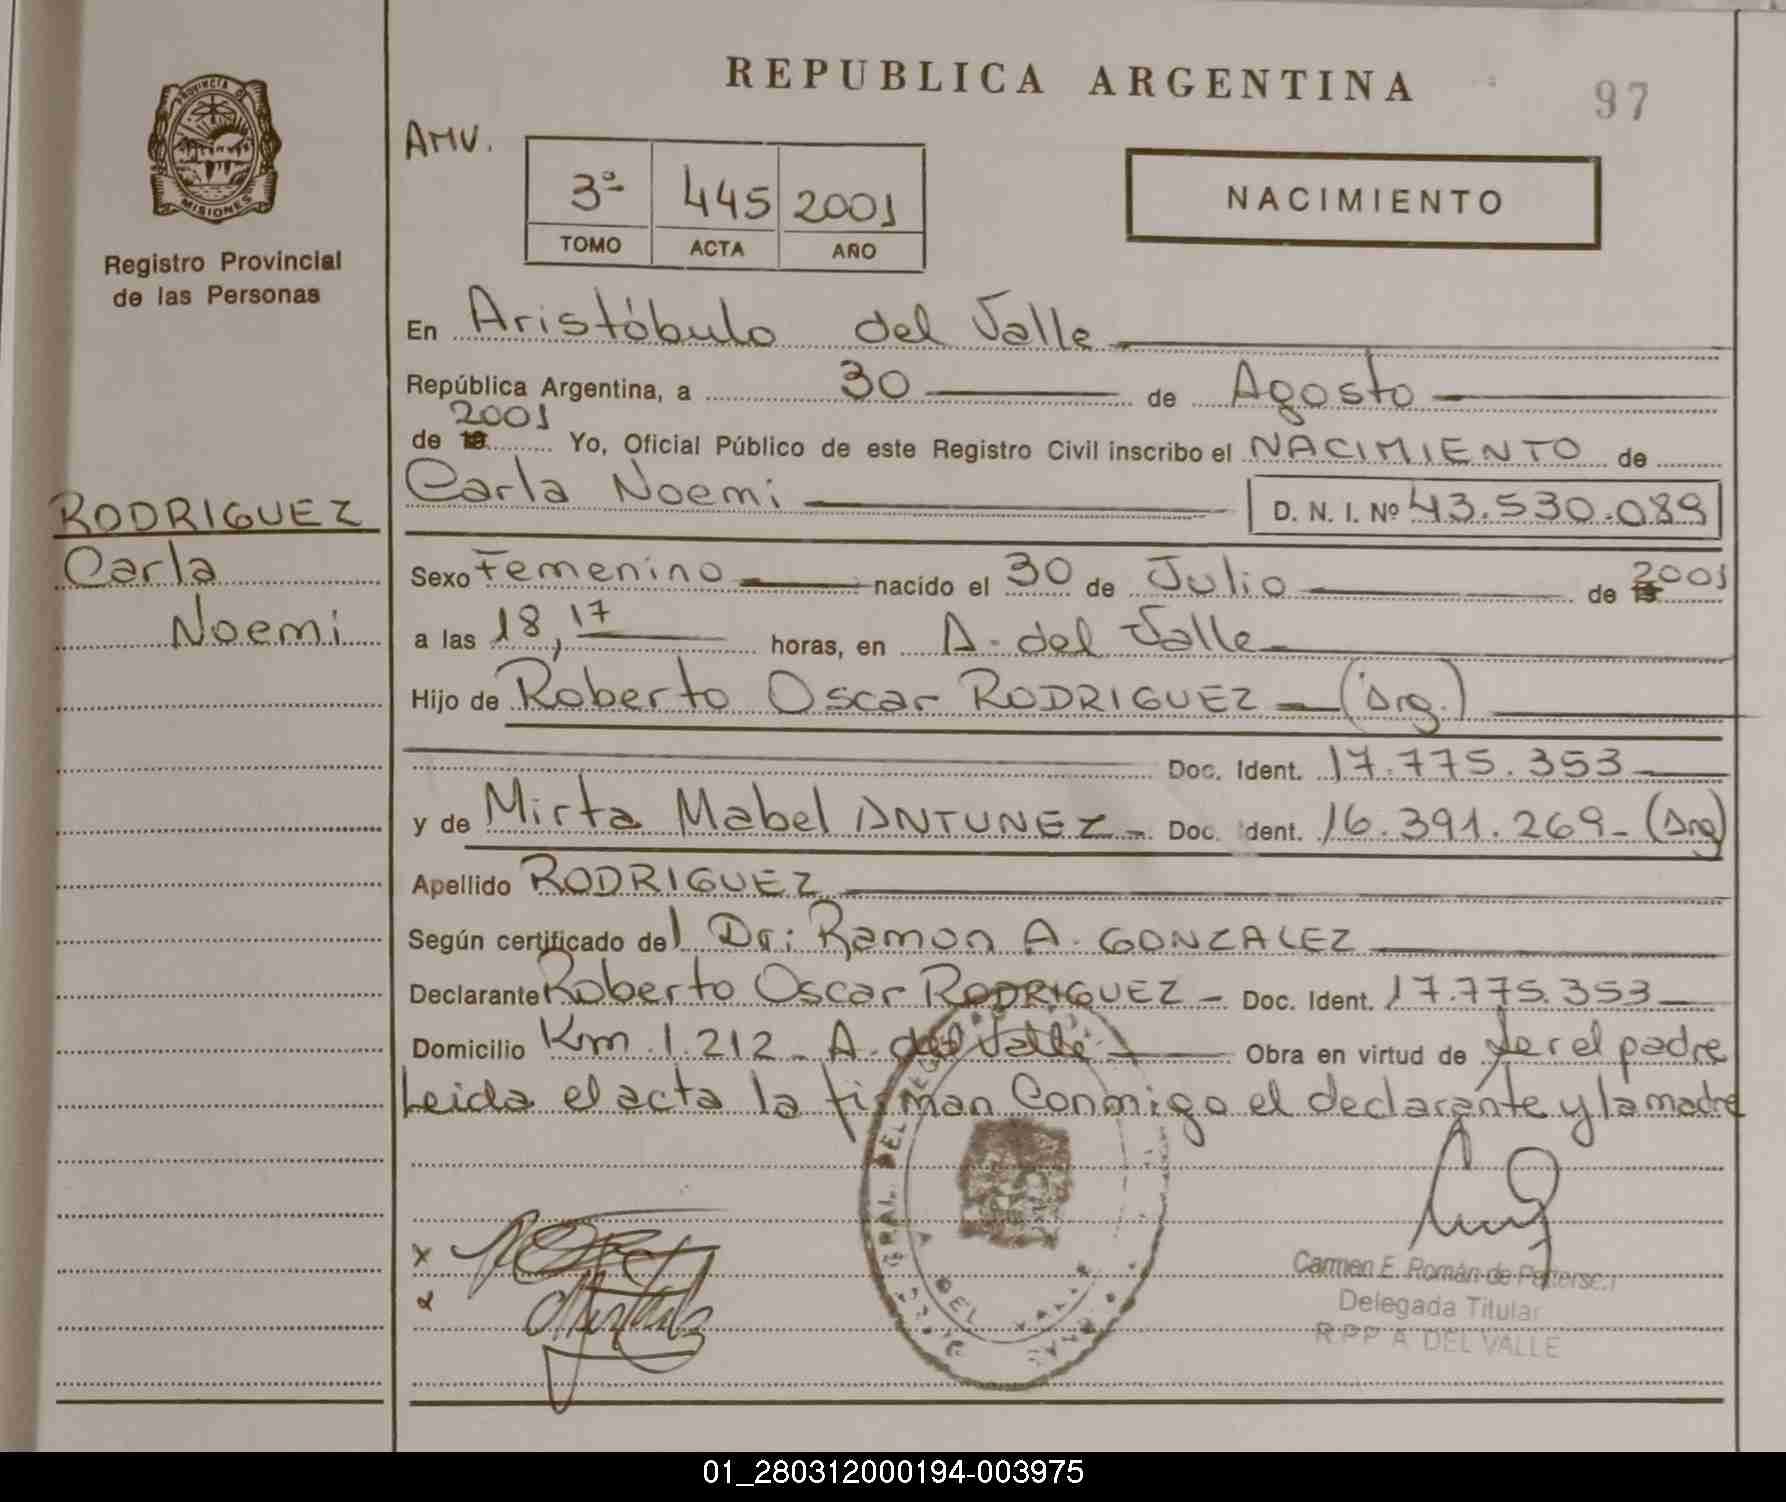 REPUBLICA ARGENTINA
97
PROVINCIA D
MISIONES
Registro Provincial
de las Personas
AMV.
3º 445 2001
TOMO ACTA AÑO
NACIMIENTO
En Aristóbulo del Valle
República Argentina, a 30 de Agosto
2001
de 19 Yo, Oficial Público de este Registro Civil inscribo el NACIMIENTO de
Carla Noemi D. N. I. Nº 43.530.089
RODRIGUEZ
Carla
Noemi
Sexo Femenino nacido el 30 de Julio de 19 2001
a las 18,17 horas, en A. del Valle
Hijo de Roberto Oscar RODRIGUEZ — (Arg.)
Doc. Ident. 17.775.353
y de Mirta Mabel ANTUNEZ - Doc. Ident. 16.391.269 - (Arg)
Apellido RODRIGUEZ
Según certificado del Dr: Ramon A. GONZALEZ
Declarante Roberto Oscar RODRIGUEZ - Doc. Ident. 17.775.353
Domicilio Km 1.212 - A. del Valle Obra en virtud de ser el padre
Leida el acta la firman Conmigo el declarante y la madre
x
Carmen E. Román de
Delegada Titular
R.P.P A DEL VALLE
GRAL. DEL
DEL
01_280312000194-003975